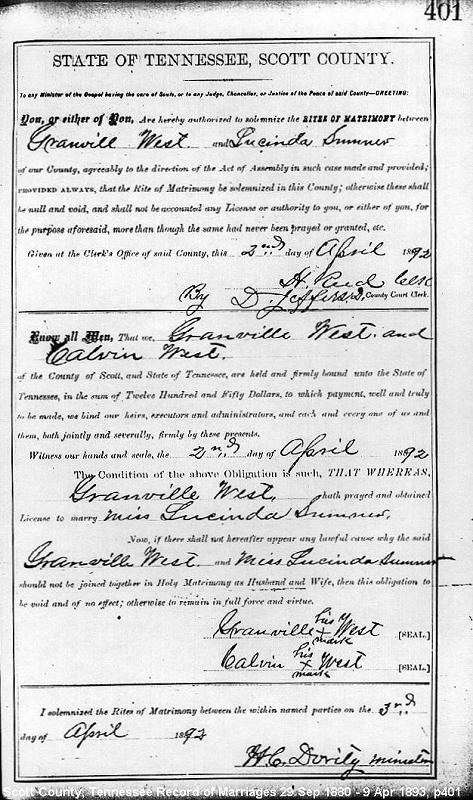 401
STATE OF TENNESSEE, SCOTT COUNTY.
To any Minister of the Gospel having the care of Souls, or to any Judge, Chancellor, or Justice of the Peace of said County—GREETING:
You, or either of You, Are hereby authorized to solemnize the RITES OF MATRIMONY between
Granvill West and Lucinda Sumner
of our County, agreeably to the direction of the Act of Assembly in such case made and provided;
PROVIDED ALWAYS, that the Rite of Matrimony be solemnized in this County; otherwise these shall
be null and void, and shall not be accounted any License or authority to you, or either of you, for
the purpose aforesaid, more than though the same had never been prayed or granted, etc.
Given at the Clerk's Office of said County, this 2nd day of April 1892
H. Reid Clk
By D. Jeffers D. County Court Clerk.
Know all Men, That we, Granville West and
Calvin West.
of the County of Scott, and State of Tennessee, are held and firmly bound unto the State of
Tennessee, in the sum of Twelve Hundred and Fifty Dollars, to which payment, well and truly
to be made, we bind our heirs, executors and administrators, and each and every one of us and
them, both jointly and severally, firmly by these presents.
Witness our hands and seals, the 2nd day of April 1892
The Condition of the above Obligation is such, THAT WHEREAS,
Granville West, hath prayed and obtained
License to marry Miss Lucinda Sumner.
Now, if there shall not hereafter appear any lawful cause why the said
Granville West and Miss Lucinda Sumner
should not be joined together in Holy Matrimony as Husband and Wife, then this obligation to
be void and of no effect; otherwise to remain in full force and virtue.
Granville his x mark West [SEAL.]
Calvin his x mark West [SEAL.]
I solemnized the Rites of Matrimony between the within named parties on the 3rd
day of April 1892
H.C. Dority minister
Scott County, Tennessee Record of Marriages 29 Sep 1880 - 9 Apr 1893, p401